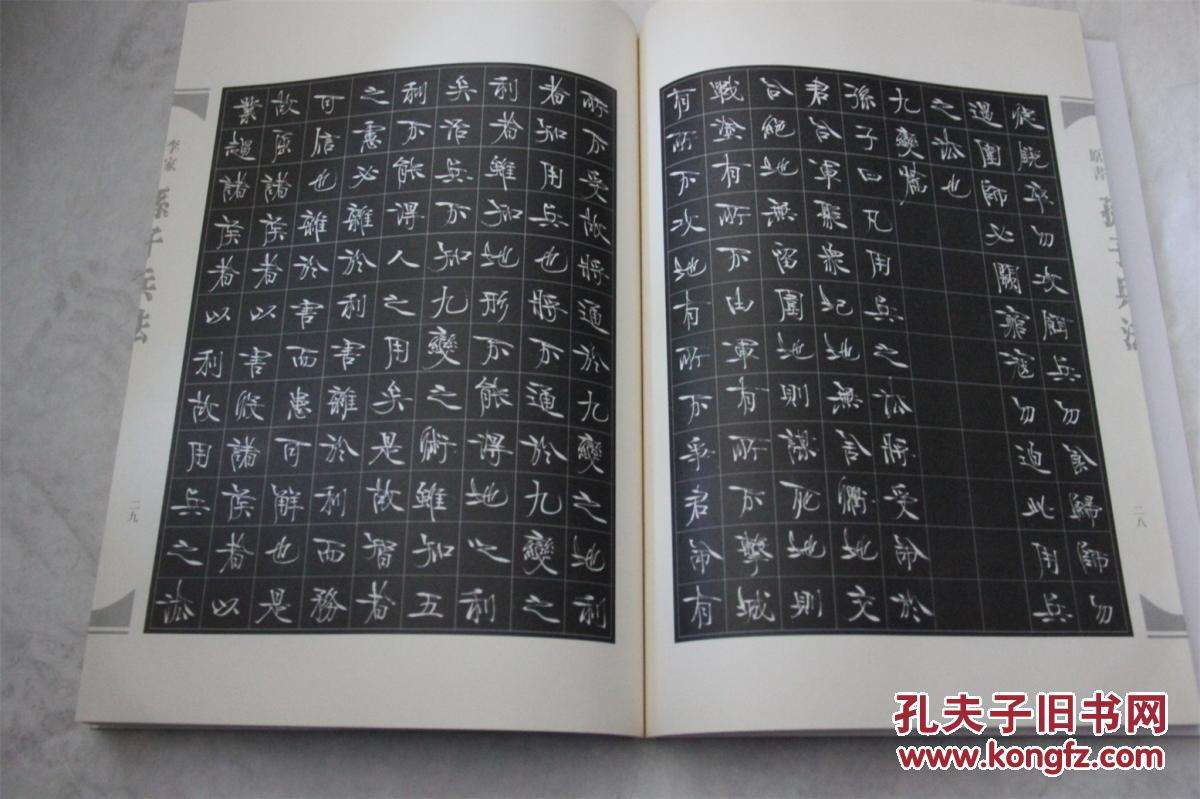 原書
孫子兵法
二八
從銳卒勿攻餌兵勿食歸師勿
遏圍師必闕窮寇勿迫此用兵
之法也
九變篇
孫子曰凡用兵之法將受命於
君合軍聚眾圮地無舍衢地交
合絕地無留圍地則謀死地則
戰塗有所不由軍有所不擊城
有所不攻地有所不爭君命有
所不受故將通於九變之地利
者知用兵也將不通於九變之
利者雖知地形不能得地之利
矣治兵不知九變之術雖知五
利不能得人之用矣是故智者
之慮必雜於利害雜於利而務
可信也雜於害而患可解也是
故屈諸侯者以害役諸侯者以
業趨諸侯者以利故用兵之法
李家
孫子兵法
二九
孔夫子旧书网
www.kongfz.com